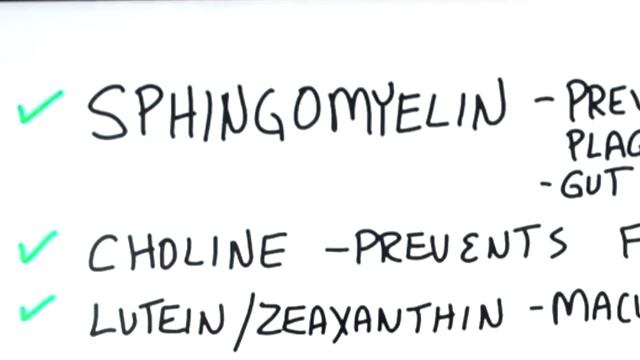 ✓ SPHINGOMYELIN - PREV
PLAG
- GUT
✓ CHOLINE - PREVENTS F
✓ LUTEIN/ZEAXANTHIN - MACU